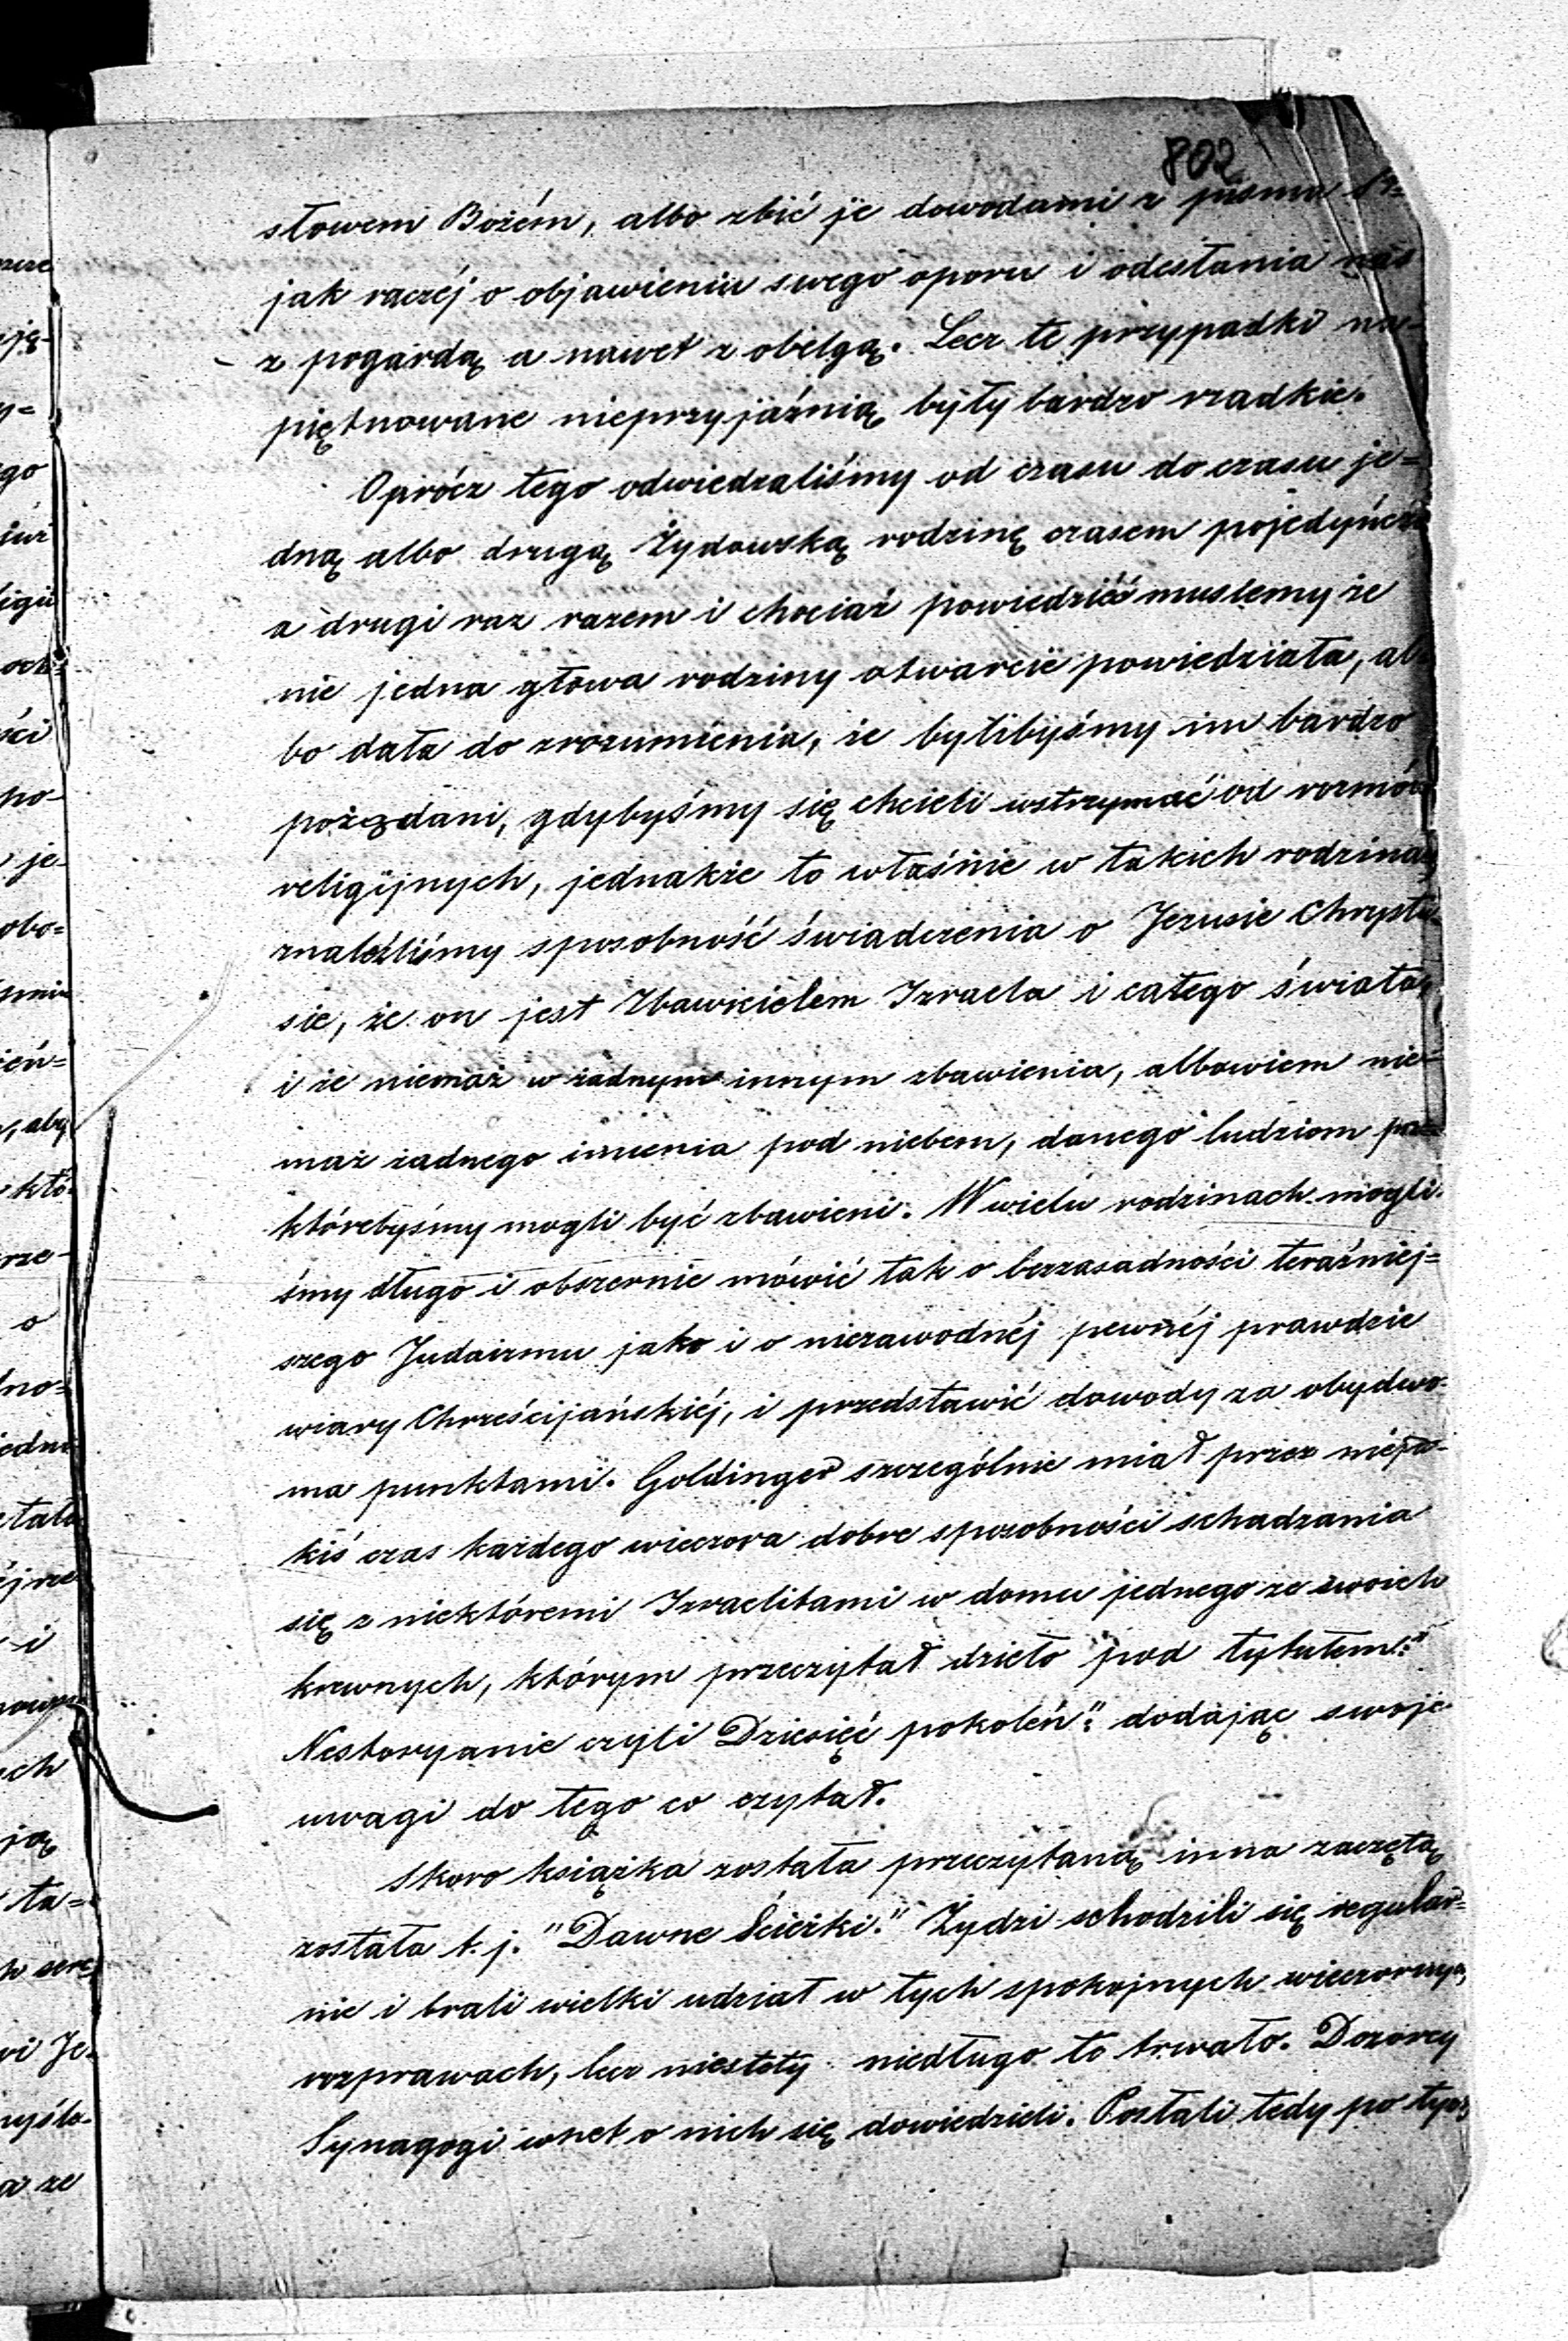 802
słowem Bożém, albo zbić je dowodami z pisma
jak raczéj o objawieniu swego oporu i odesłania nas
z pogardą a nawet z obelgą. Lecz te przypadki na-
piętnowane nieprzyjaźnią były bardzo rzadkie.
Oprócz tego odwiedzaliśmy od czasu do czasu je=
dną albo drugą Żydowską rodzinę czasem pojedyńczo
a drugi raz razem i chociaż powiedzićć musiemy że
nie jedna głowa rodziny otwarcie powiedziała, al-
bo dała do zrozumienia, że bylibyśmy im bardzo
pożądani, gdybyśmy się chcieli wstrzymać od rozmów
religijnych, jednakże to właśnie w takich rodzinach
znaleźliśmy sposobność świadczenia o Jezusie Chrystu-
sie, że on jest Zbawicielem Izraela i całego świata,
i że niemasz w żadnym innym zbawienia, albowiem nie-
masz żadnego imienia pod niebem, danego ludziom
którebyśmy mogli być zbawieni. W wielu rodzinach mogli-
śmy długo i obszernie mówić tak o bezzasadności teraźniej=
szego Judaizmu jako i o niezawodnéj pewnéj prawdzie
wiary Chrześcijańskiéj, i przedstawić dowody za obydwo-
ma punktami. Goldinger szczególnie miał przez nieja-
kiś czas każdego wieczora dobre sposobności schadzania
się z niektóremi Izraelitami w domu jednego ze swoich
krewnych, którym przeczytał dzieło "pod tytułem:"
Nestoryanie czyli Dziesięć pokoleń": dodając swoje
uwagi do tego co czytał.
Skoro książka została przeczytaną inna zaczętą
została t. j. "Dawne Ścieżki." Żydzi schodzili się regular=
nie i brali wielki udział w tych spokojnych wieczornych
rozprawach, lecz niestety niedługo to trwało. Dozorcy
Synagogi wnet o nich się dowiedzieli. Posłali tedy po tych